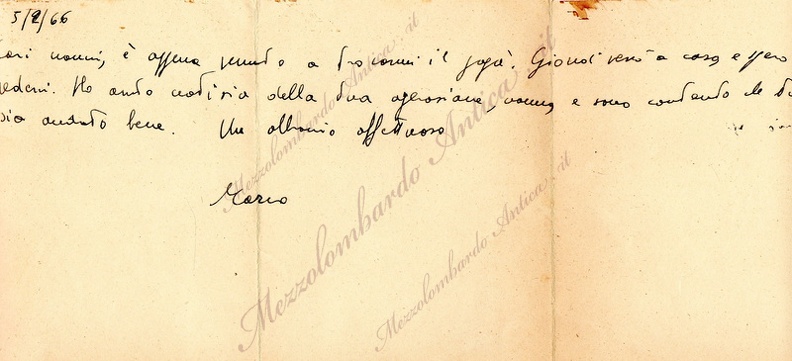 5/2/66
cari nonni, è appena venuto a trovarmi il papà. Giovedì verrò a casa e spero
vedervi. Ho avuto notizia della tua operazione, nonna, e sono contento che tu
sia andato bene. Un abbraccio affettuoso
Mario
Mezzolombardo Antica.it
Mezzolombardo Antica.it
Mezzolombardo Antica.it